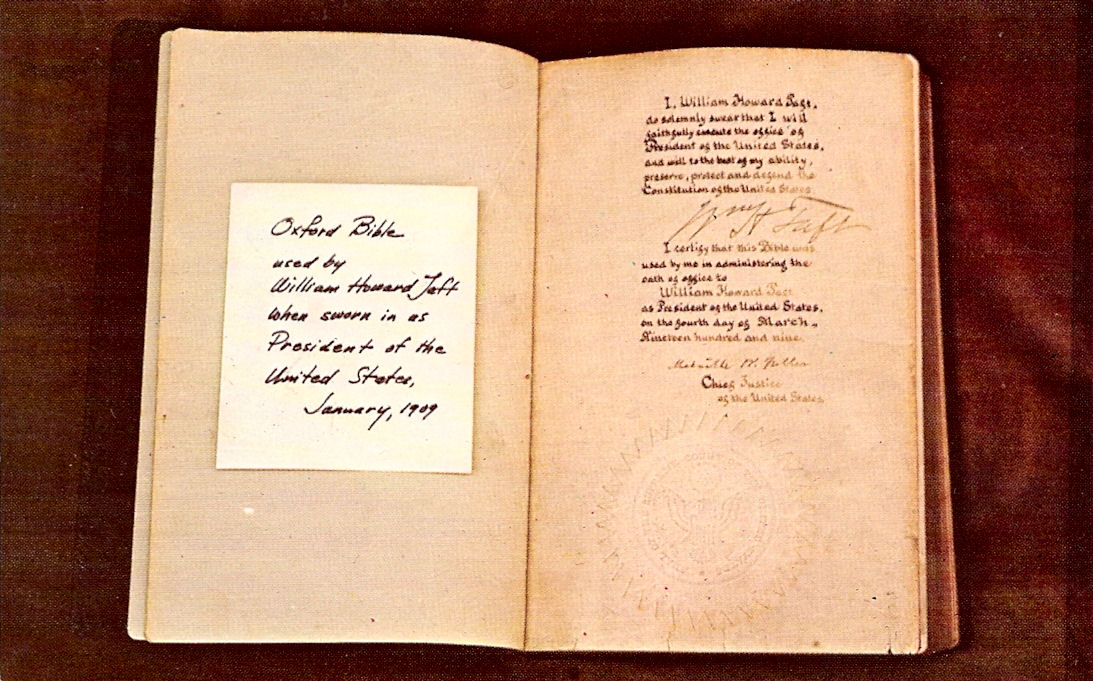 Oxford Bible
used by
William Howard Taft
when sworn in as
President of the
United States,
January, 1909
I, William Howard Taft,
do solemnly swear that I will
faithfully execute the office of
President of the United States,
and will to the best of my ability,
preserve, protect and defend the
Constitution of the United States.
Wm H Taft
I certify that this Bible was
used by me in administering the
oath of office to
William Howard Taft
as President of the United States,
on the fourth day of March,
Nineteen hundred and nine.
Melville W. Fuller
Chief Justice
of the United States